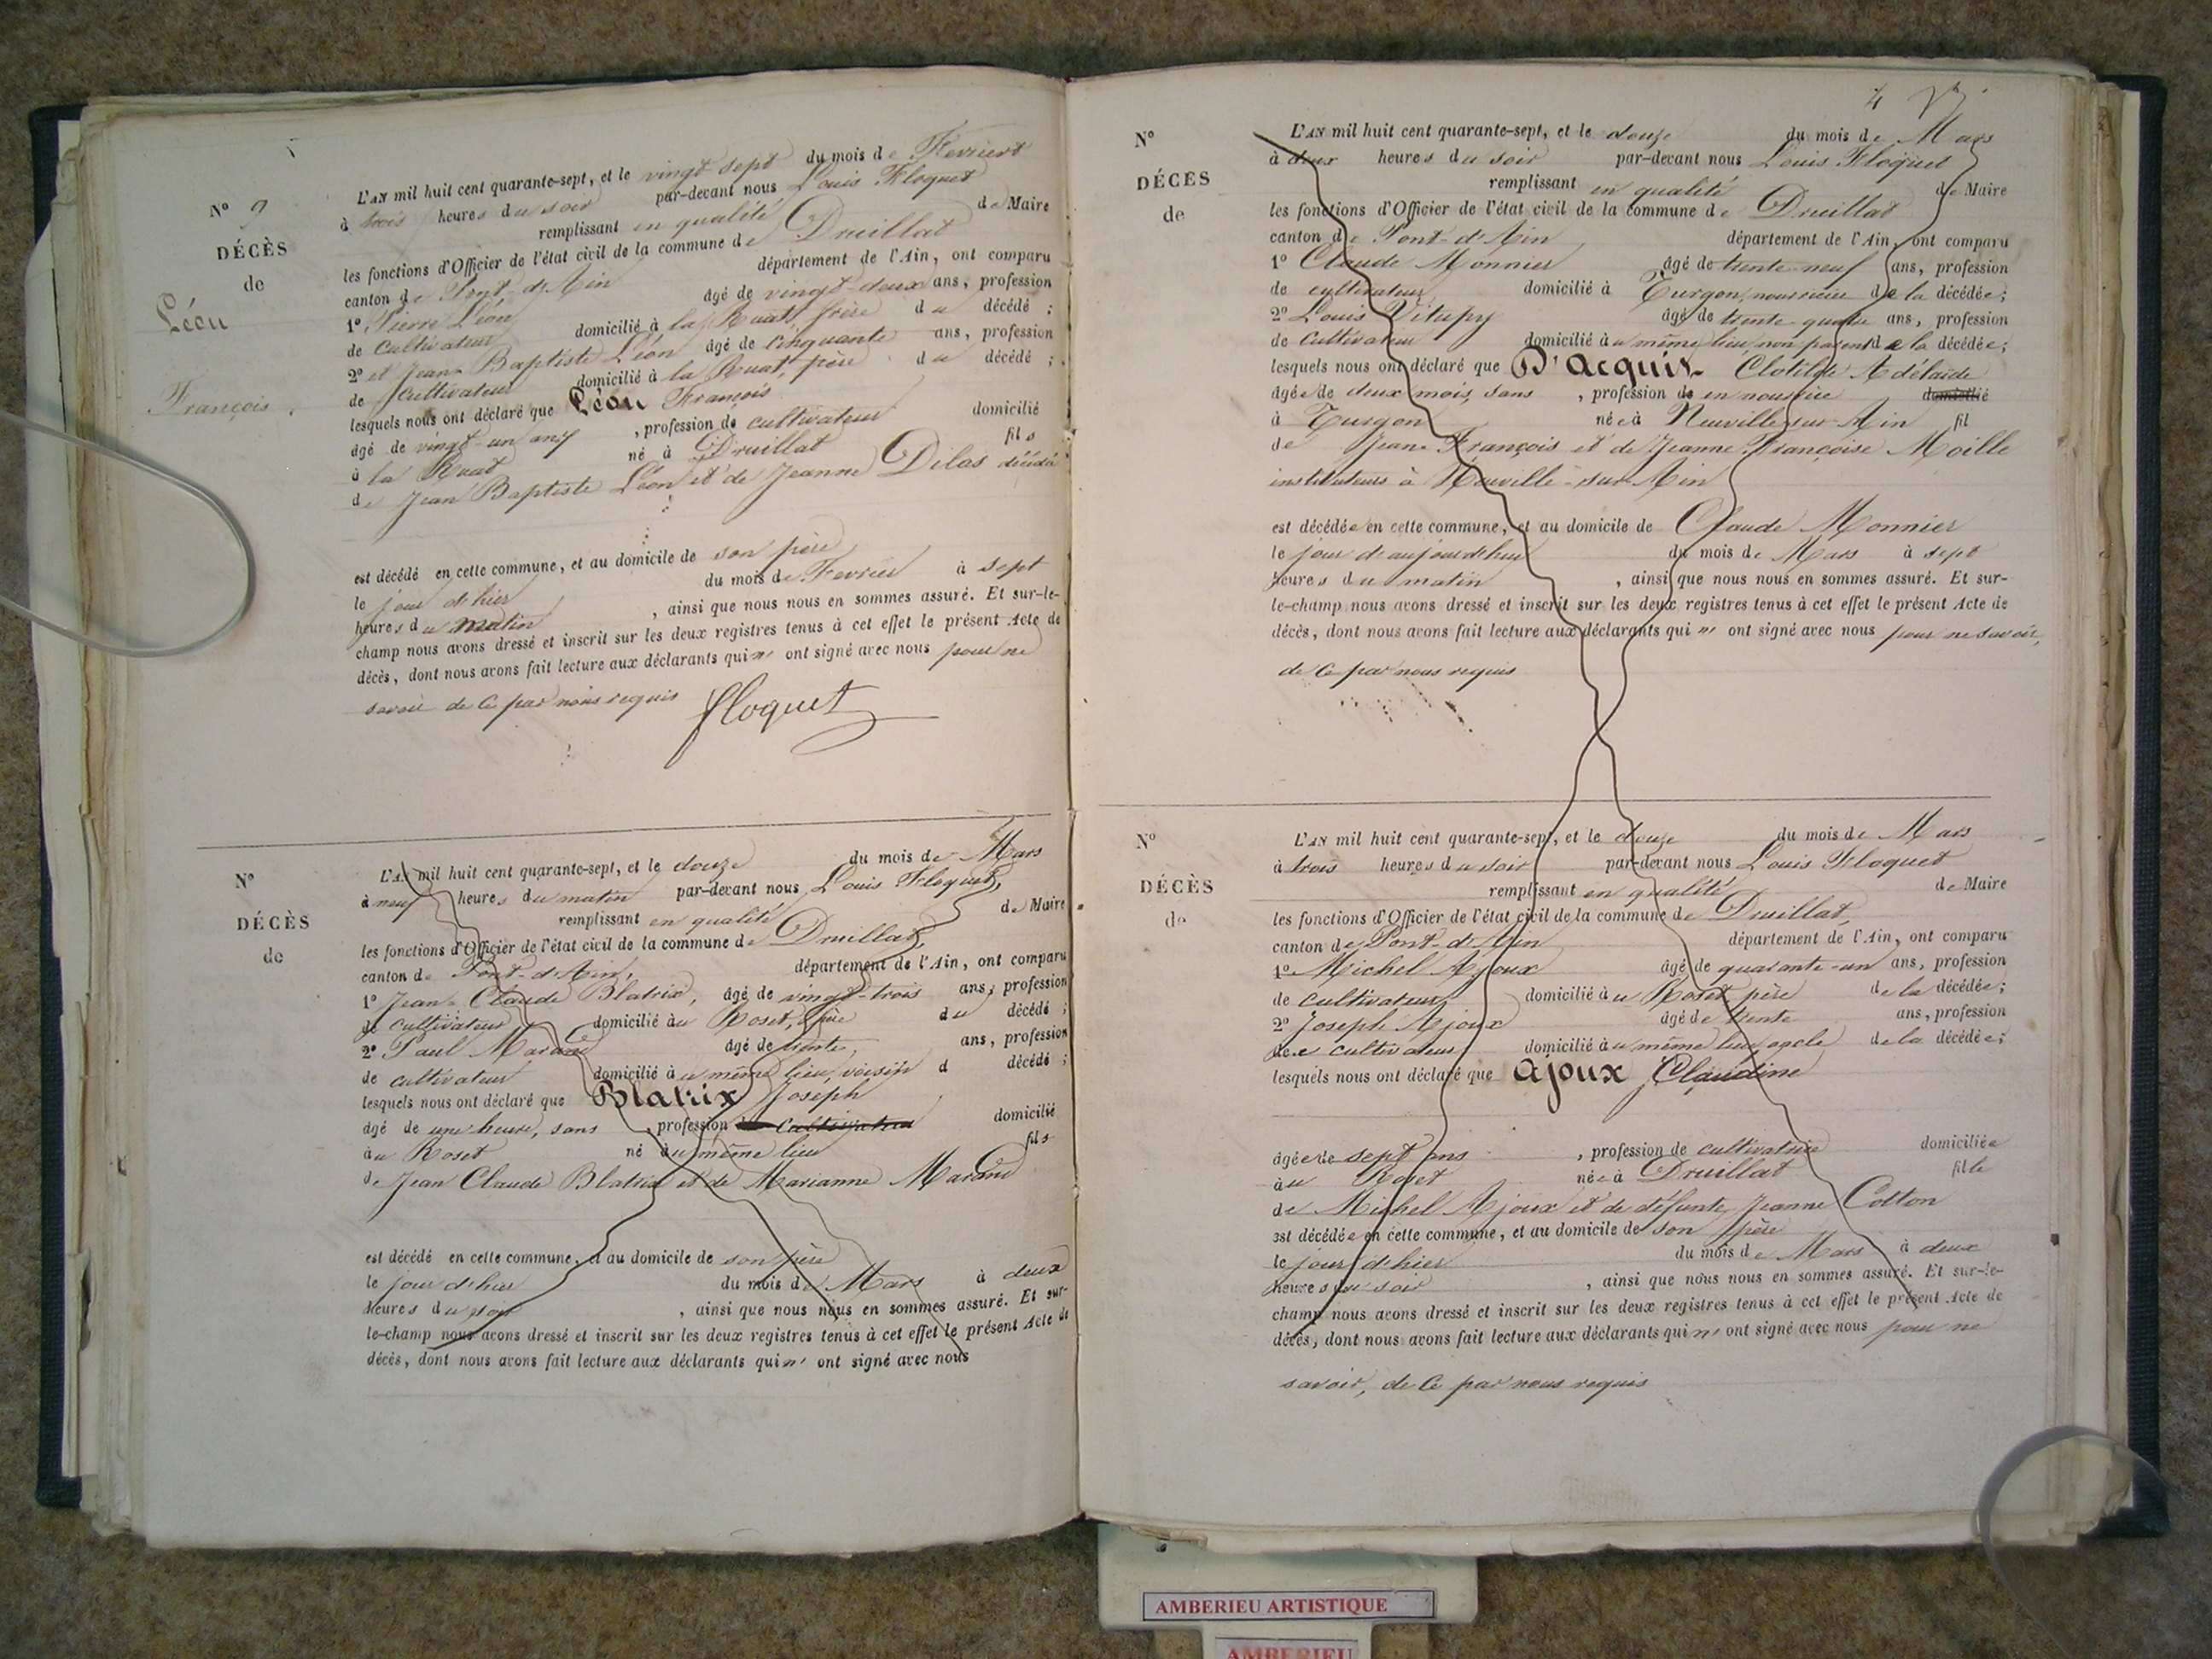 Nº 9
DÉCÈS
de
Léon
François
L'AN mil huit cent quarante-sept, et le vingt sept du mois de Fevriert
à trois heures du soir par-devant nous Louis Floquet
remplissant en qualité de Maire
les fonctions d'Officier de l'état civil de la commune de Druillat
canton de Pont-d'Ain département de l'Ain, ont comparu
1º Pierre Léon âgé de vingt-deux ans, profession
de cultivateur domicilié à la Ruat, frère du décédé ;
2º et Jean Baptiste Léon âgé de cinquante ans, profession
de cultivateur domicilié à la Ruat, père du décédé ;
lesquels nous ont déclaré que Léon François
âgé de vingt-un ans , profession de cultivateur domicilié
à la Ruat né à Druillat fils
de Jean Baptiste Léon et de Jeanne Dilas décédé
est décédé en cette commune, et au domicile de son père
le jour d'hier du mois de Fevrier à sept
heures du matin , ainsi que nous nous en sommes assuré. Et sur-le-
champ nous avons dressé et inscrit sur les deux registres tenus à cet effet le présent Acte de
décès, dont nous avons fait lecture aux déclarants qui n' ont signé avec nous pour ne
savoir de ce par nous requis floquet
Nº
DÉCÈS
de
L'AN mil huit cent quarante-sept, et le douze du mois de Mars
à neuf heures du matin par-devant nous Louis Floquet,
remplissant en qualité de Maire
les fonctions d'Officier de l'état civil de la commune de Druillat,
canton de Pont-d'Ain, département de l'Ain, ont comparu
1º Jean-Claude Blatrix, âgé de vingt-trois ans, profession
de cultivateur domicilié au Roset, père du décédé ;
2º Paul Marand âgé de trente, ans, profession
de cultivateur domicilié au même lieu, voisin d décédé ;
lesquels nous ont déclaré que Blatrix Joseph
âgé de une heure, sans , profession domicilié
au Roset né au même lieu fils
de Jean Claude Blatrix et de Marianne Marand
est décédé en cette commune, et au domicile de son père
le jour d'hier du mois de Mars à deux
heures du soir , ainsi que nous nous en sommes assuré. Et sur-
le-champ nous avons dressé et inscrit sur les deux registres tenus à cet effet le présent Acte de
décès, dont nous avons fait lecture aux déclarants qui n' ont signé avec nous
4
Nº
DÉCÈS
de
L'AN mil huit cent quarante-sept, et le douze du mois de Mars
à deux heures du soir par-devant nous Louis Floquet
remplissant en qualité de Maire
les fonctions d'Officier de l'état civil de la commune de Druillat
canton de Pont-d'Ain département de l'Ain, ont comparu
1º Claude Monnier âgé de trente neuf ans, profession
de cultivateur domicilié à Turgon, nourricier de la décédée;
2º Louis Vitupy âgé de trente quatre ans, profession
de cultivateur domicilié au même lieu, non parent de la décédée;
lesquels nous ont déclaré que D'acquis Clotilde Adélaïde
âgée de deux mois, sans , profession de en nourrice domicilié
à Turgon née à Neuville-sur-Ain fil
de Jean-François et de Jeanne Françoise Moille
instituteurs à Neuville-sur-Ain
est décédée en cette commune, et au domicile de Claude Monnier
le jour d'aujourd'hui du mois de Mars à sept
heures du matin , ainsi que nous nous en sommes assuré. Et sur-
le-champ nous avons dressé et inscrit sur les deux registres tenus à cet effet le présent Acte de
décès, dont nous avons fait lecture aux déclarants qui n' ont signé avec nous pour ne savoir,
de ce par nous requis
Nº
DÉCÈS
de
L'AN mil huit cent quarante-sept, et le douze du mois de Mars
à trois heures du soir par-devant nous Louis Floquet
remplissant en qualité de Maire
les fonctions d'Officier de l'état civil de la commune de Druillat,
canton de Pont-d'Ain département de l'Ain, ont comparu
1º Michel Ajoux âgé de quarante-un ans, profession
de cultivateur domicilié au Roset père de la décédée;
2º Joseph Ajoux âgé de trente ans, profession
de cultivateur domicilié au même lieu, oncle de la décédée;
lesquels nous ont déclaré que Ajoux Claudine
âgée de sept ans , profession de cultivatrice domiciliée
au Roset née à Druillat fille
de Michel Ajoux et de défunte Jeanne Cotton
est décédée en cette commune, et au domicile de son père
le jour d'hier du mois de Mars à deux
heures du soir , ainsi que nous nous en sommes assuré. Et sur-le-
champ nous avons dressé et inscrit sur les deux registres tenus à cet effet le présent Acte de
décès, dont nous avons fait lecture aux déclarants qui n' ont signé avec nous pour ne
savoir, de ce par nous requis
AMBERIEU ARTISTIQUE
AMBERIEU